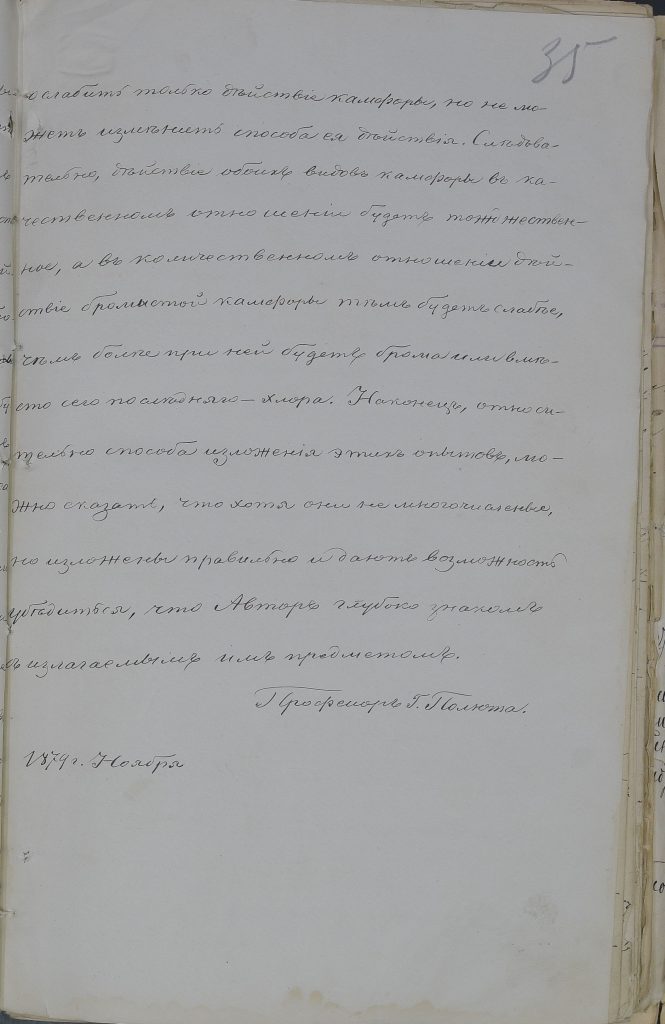 35
ослабить только дѣйствіе камфоры, но не мо-
жетъ измѣнить способа ея дѣйствія. Слѣдова-
тельно, дѣйствіе обоихъ видовъ камфоры въ ка-
чественномъ отношеніи будетъ тождествен-
ное, а въ количественномъ отношеніи дѣй-
ствіе бромистой камфоры тѣмъ будетъ слабѣе,
чѣмъ болѣе при ней будетъ брома или вмѣ-
сто сего послѣдняго — хлора. Наконецъ, относи-
тельно способа изложенія этихъ опытовъ, мо-
жно сказать, что хотя они не многочисленные,
но изложены правильно и даютъ возможность
убѣдиться, что Авторъ глубоко знакомъ
съ излагаемымъ имъ предметомъ.
Професоръ Г. Полюта.
1879 г. Ноября